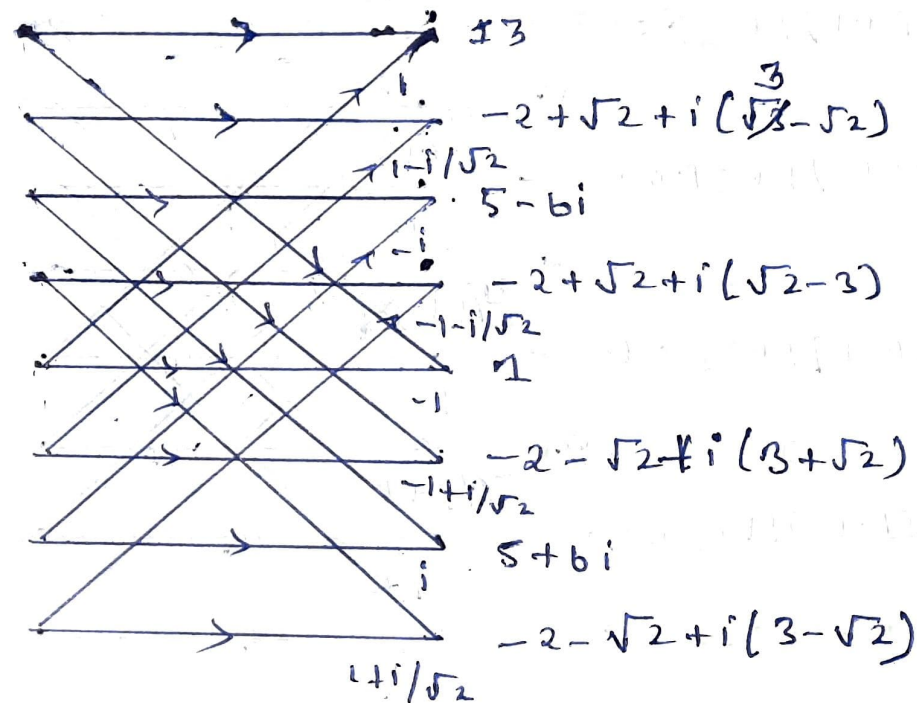 13
1
-2 + √2 + i (3 - √2)
1-i/√2
5 - 6i
-i
-2 + √2 + i (√2 - 3)
-1-i/√2
1
-1
-2 - √2 + i (3 + √2)
-1+i/√2
5 + 6i
i
-2 - √2 + i (3 - √2)
1+i/√2